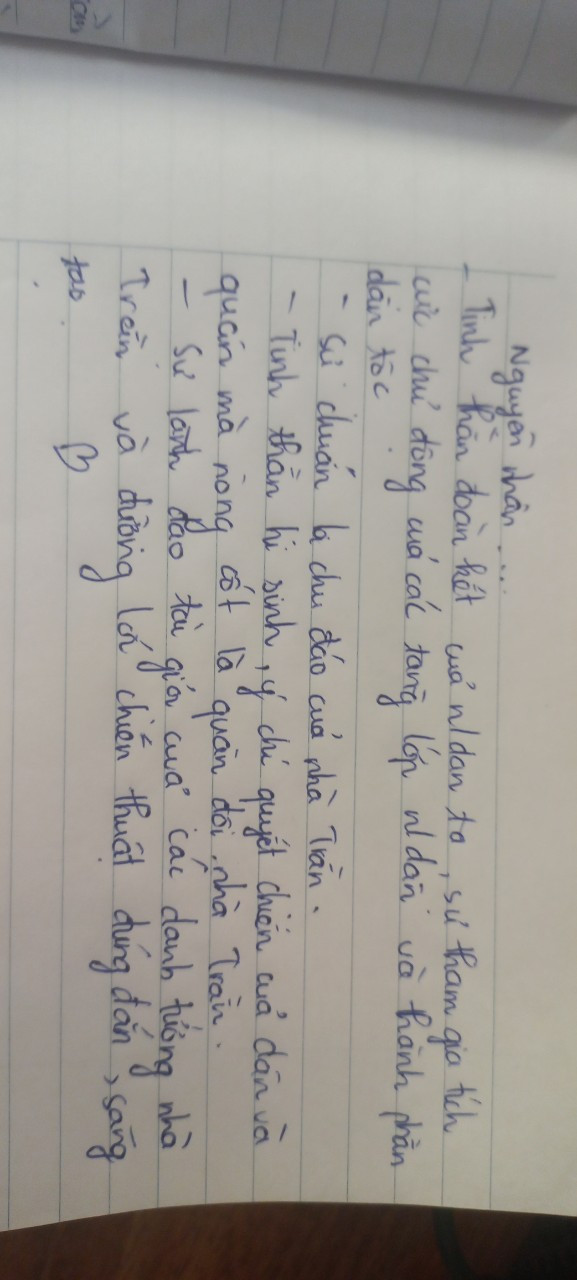 Nguyên nhân...
- Tinh thần đoàn kết cuả n/dan ta, sự tham gia tích
cực chủ động cuả các tầng lớp n/dân và thành phần
dân tộc.
- Sự chuẩn bị chu đáo cuả nhà Trần.
- Tinh thần hi sinh, ý chí quyết chiến cuả dân và
quân mà nòng cốt là quân đội nhà Trần.
- Sự lãnh đạo tài giỏi cuả các danh tướng nhà
Trần và đường lối chiến thuật đúng đắn, sáng
tạo.